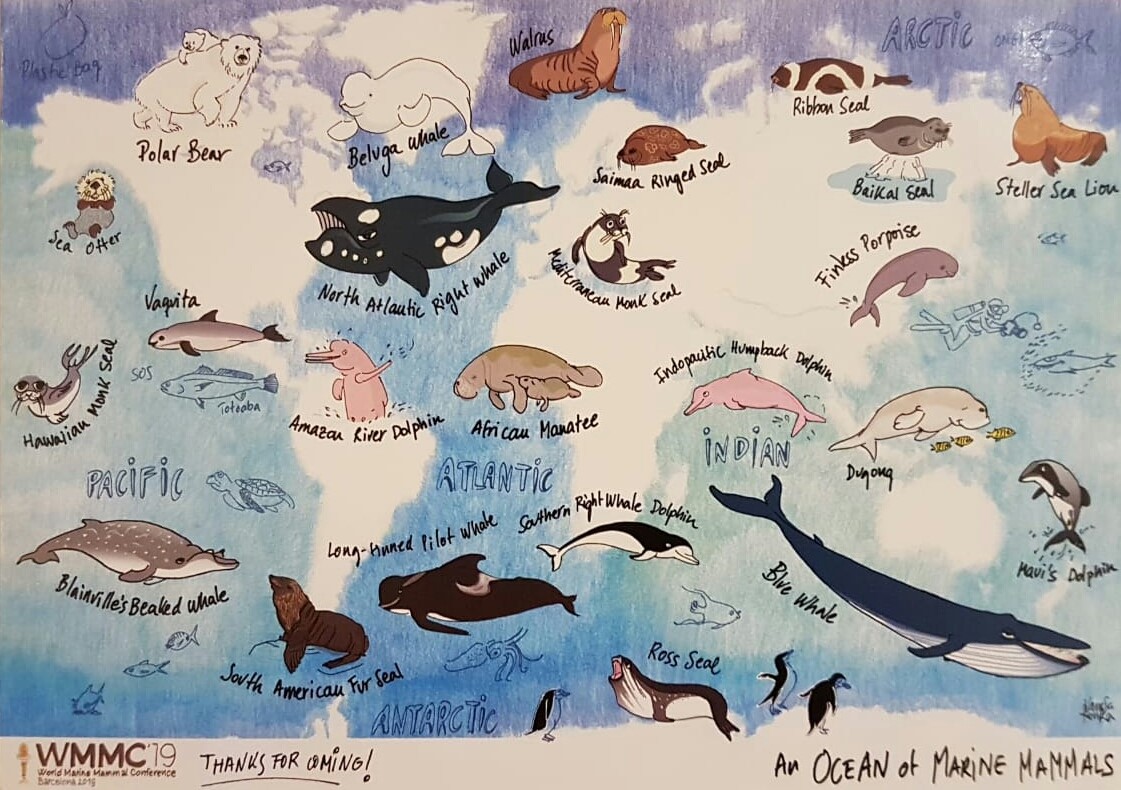 Plastic Bag
Walrus
ARCTIC
Ribbon Seal
Polar Bear
Beluga whale
Saimaa Ringed Seal
Baikal Seal
Steller Sea Lion
Sea Otter
North Atlantic Right whale
Mediterranean Monk Seal
Finless Porpoise
Vaquita
Hawaiian Monk Seal
SOS
Totoaba
Amazon River Dolphin
African Manatee
Indopacific Humpback Dolphin
INDIAN
Dugong
PACIFIC
ATLANTIC
Southern Right Whale Dolphin
Long-finned Pilot Whale
Blainville's Beaked Whale
Blue Whale
Maui's Dolphin
South American Fur Seal
Ross Seal
ANTARCTIC
WMMC'19
World Marine Mammal Conference
Barcelona 2019
THANKS FOR COMING!
An OCEAN of MARINE MAMMALS